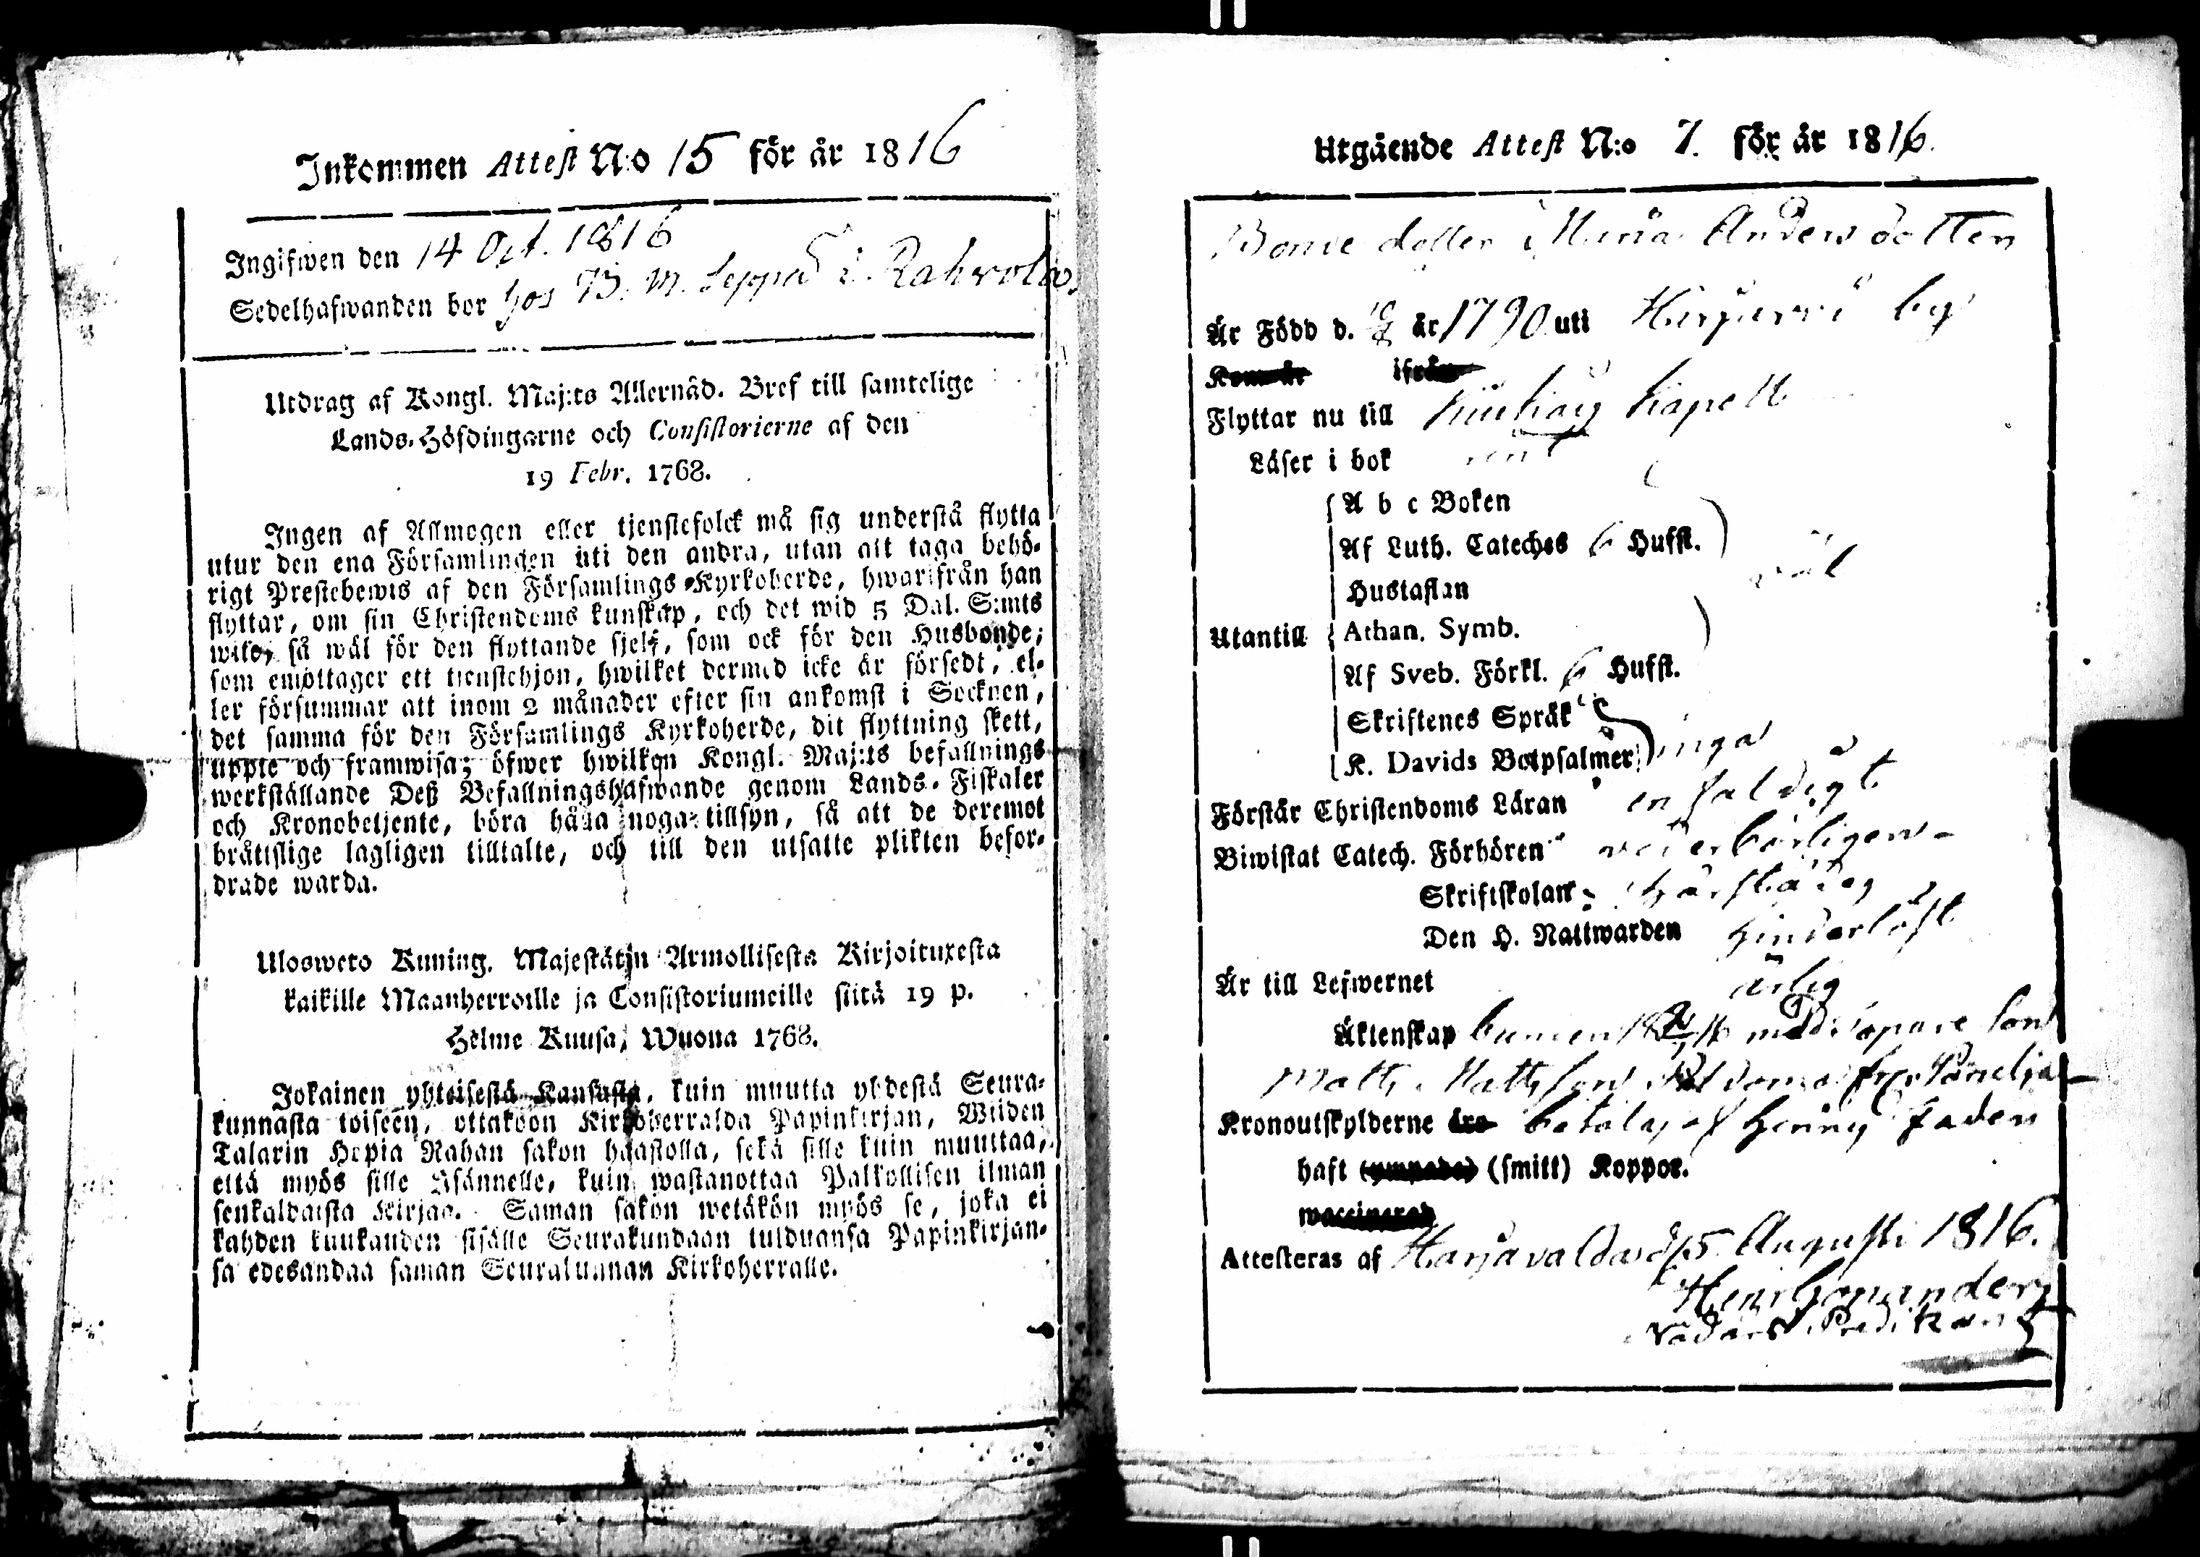 Inkommen Attest N:o 15 för år 1816
Ingifwen den 14 Oct. 1816
Sedelhafwanden bor hos B. M. Seppä i Rahvola.
Utdrag af Kongl. Maj:ts Allernåd. Bref till samtelige
Lands-Höfdingarne och Consistorierne af den
19 Febr. 1768.
Ingen af Allmogen eller tjenstefolck må sig understå flytta
utur den ena Församlingen uti den andra, utan att taga behö-
rigt Prestebewis af den Församlings-Kyrkoherde, hwarifrån han
flyttar, om sin Christendoms kunskap, och det wid 5 Dal. S:mts
wite, så wäl för den flyttande sjelf, som ock för den Husbonde,
som emottager ett tienstehjon, hwilket dermed icke är försedt, el-
ler försummar att inom 2 månader efter sin ankomst i Socknen,
det samma för den Församlings Kyrkoherde, dit flyttning skett,
uppte och framwisa; öfwer hwilken Kongl. Maj:ts befallnings
werkställande Deß Befallningshafwande genom Lands-Fiskaler
och Kronobetjente, böra hålla noga tillsyn, så att de deremot
bråttslige lagligen tilltalte, och till den utsatte plikten befor-
drade warda.
Ulosweto Kuning. Majestätin Armollisesta Kirjoituxesta
kaikille Maanherroille ja Consistoriumeille siitä 19 p.
Helme Kuusa, Wuona 1768.
Jokainen yhteisestä Kansasta, kuin muutta yhdestä Seura-
kunnasta toiseen, ottakoon Kirkoherralda Papinkirjan, Wiiden
Talarin Hopia Rahan sakon haastolla, sekä sille kuin muuttaa,
että myös sille Isännelle, kuin wastanottaa Palkollisen ilman
senkaldaista Kirjaa. Saman sakon wetäkön myös se, joka ei
kahden kuukauden sisälle Seurakundaan tulduansa Papinkirjan-
sa edesandaa saman Seurakunnan Kirkoherralle.
Utgående Attest N:o 7. för år 1816.
Bonde dotter Maria Anders dotter
Är Född d. år 1790 uti Hiirijärvi by
Kom år ifrån
Flyttar nu till Kapell
Läser i bok rent
A b c Boken
Af Luth. Cateches 6 Hufst.
Hustaflan
väl
Utantill Athan. Symb.
Af Sveb. Förkl. 6 Hufst.
Skriftenes Språk
K. Davids Botpsalmer inga
Förstår Christendoms Läran enfaldigt
Biwistat Catech. Förhören wederbörligen
Skriftskolan
Den H. Nattwarden hinderlöst
Är till Lefwernet ärlig
Äktenskap med
Matts Mattsson
Kronoutskylderne äro betalas af hennes fader
haft (ympade) (smitt) Koppor.
waccinerad
Attesteras af Harjavalda d. 15 Augusti 1816.
Nådårs Predikant